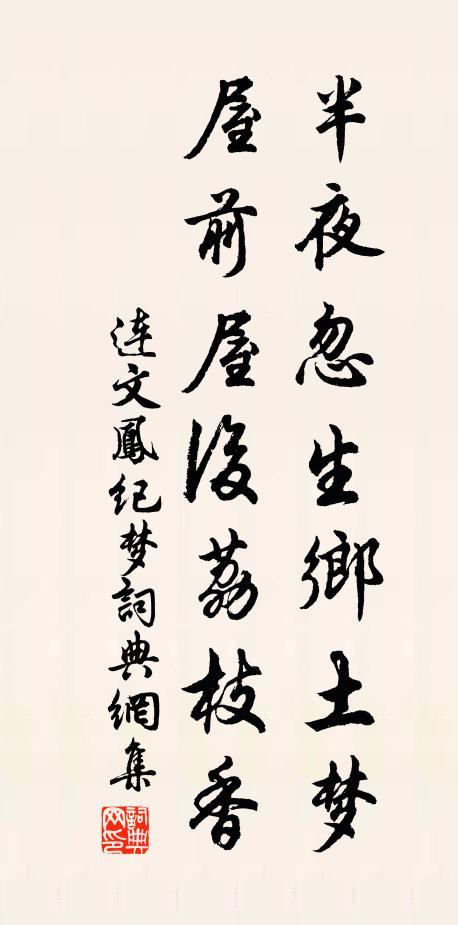 半夜忽生鄉土梦
屋前屋後荔枝香
连文鳳纪梦詞典網集
詞典网印